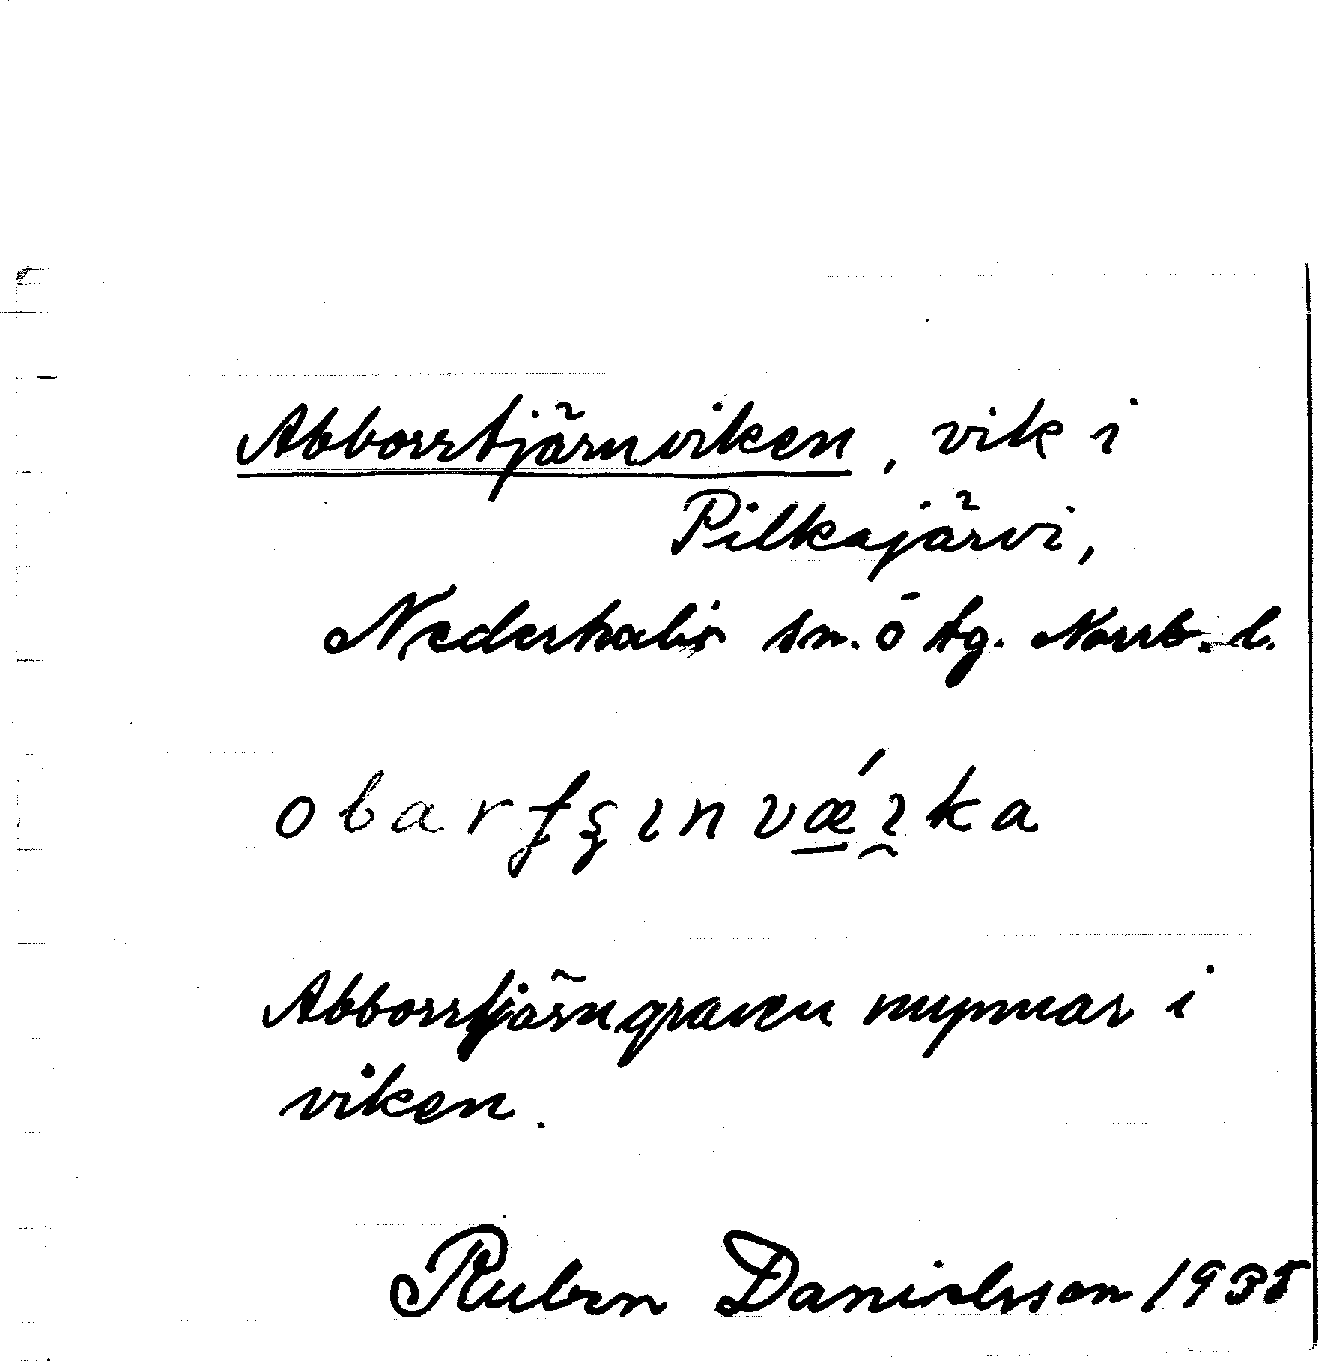 Abborrtjärnviken, vik i
Pilkajärvi,
Nederkalix sn. ö tg. Norrb. l.
obarʄʂınvǽıka
Abborrtjärngraven mynnar i
viken.
Ruben Danielsson 1935